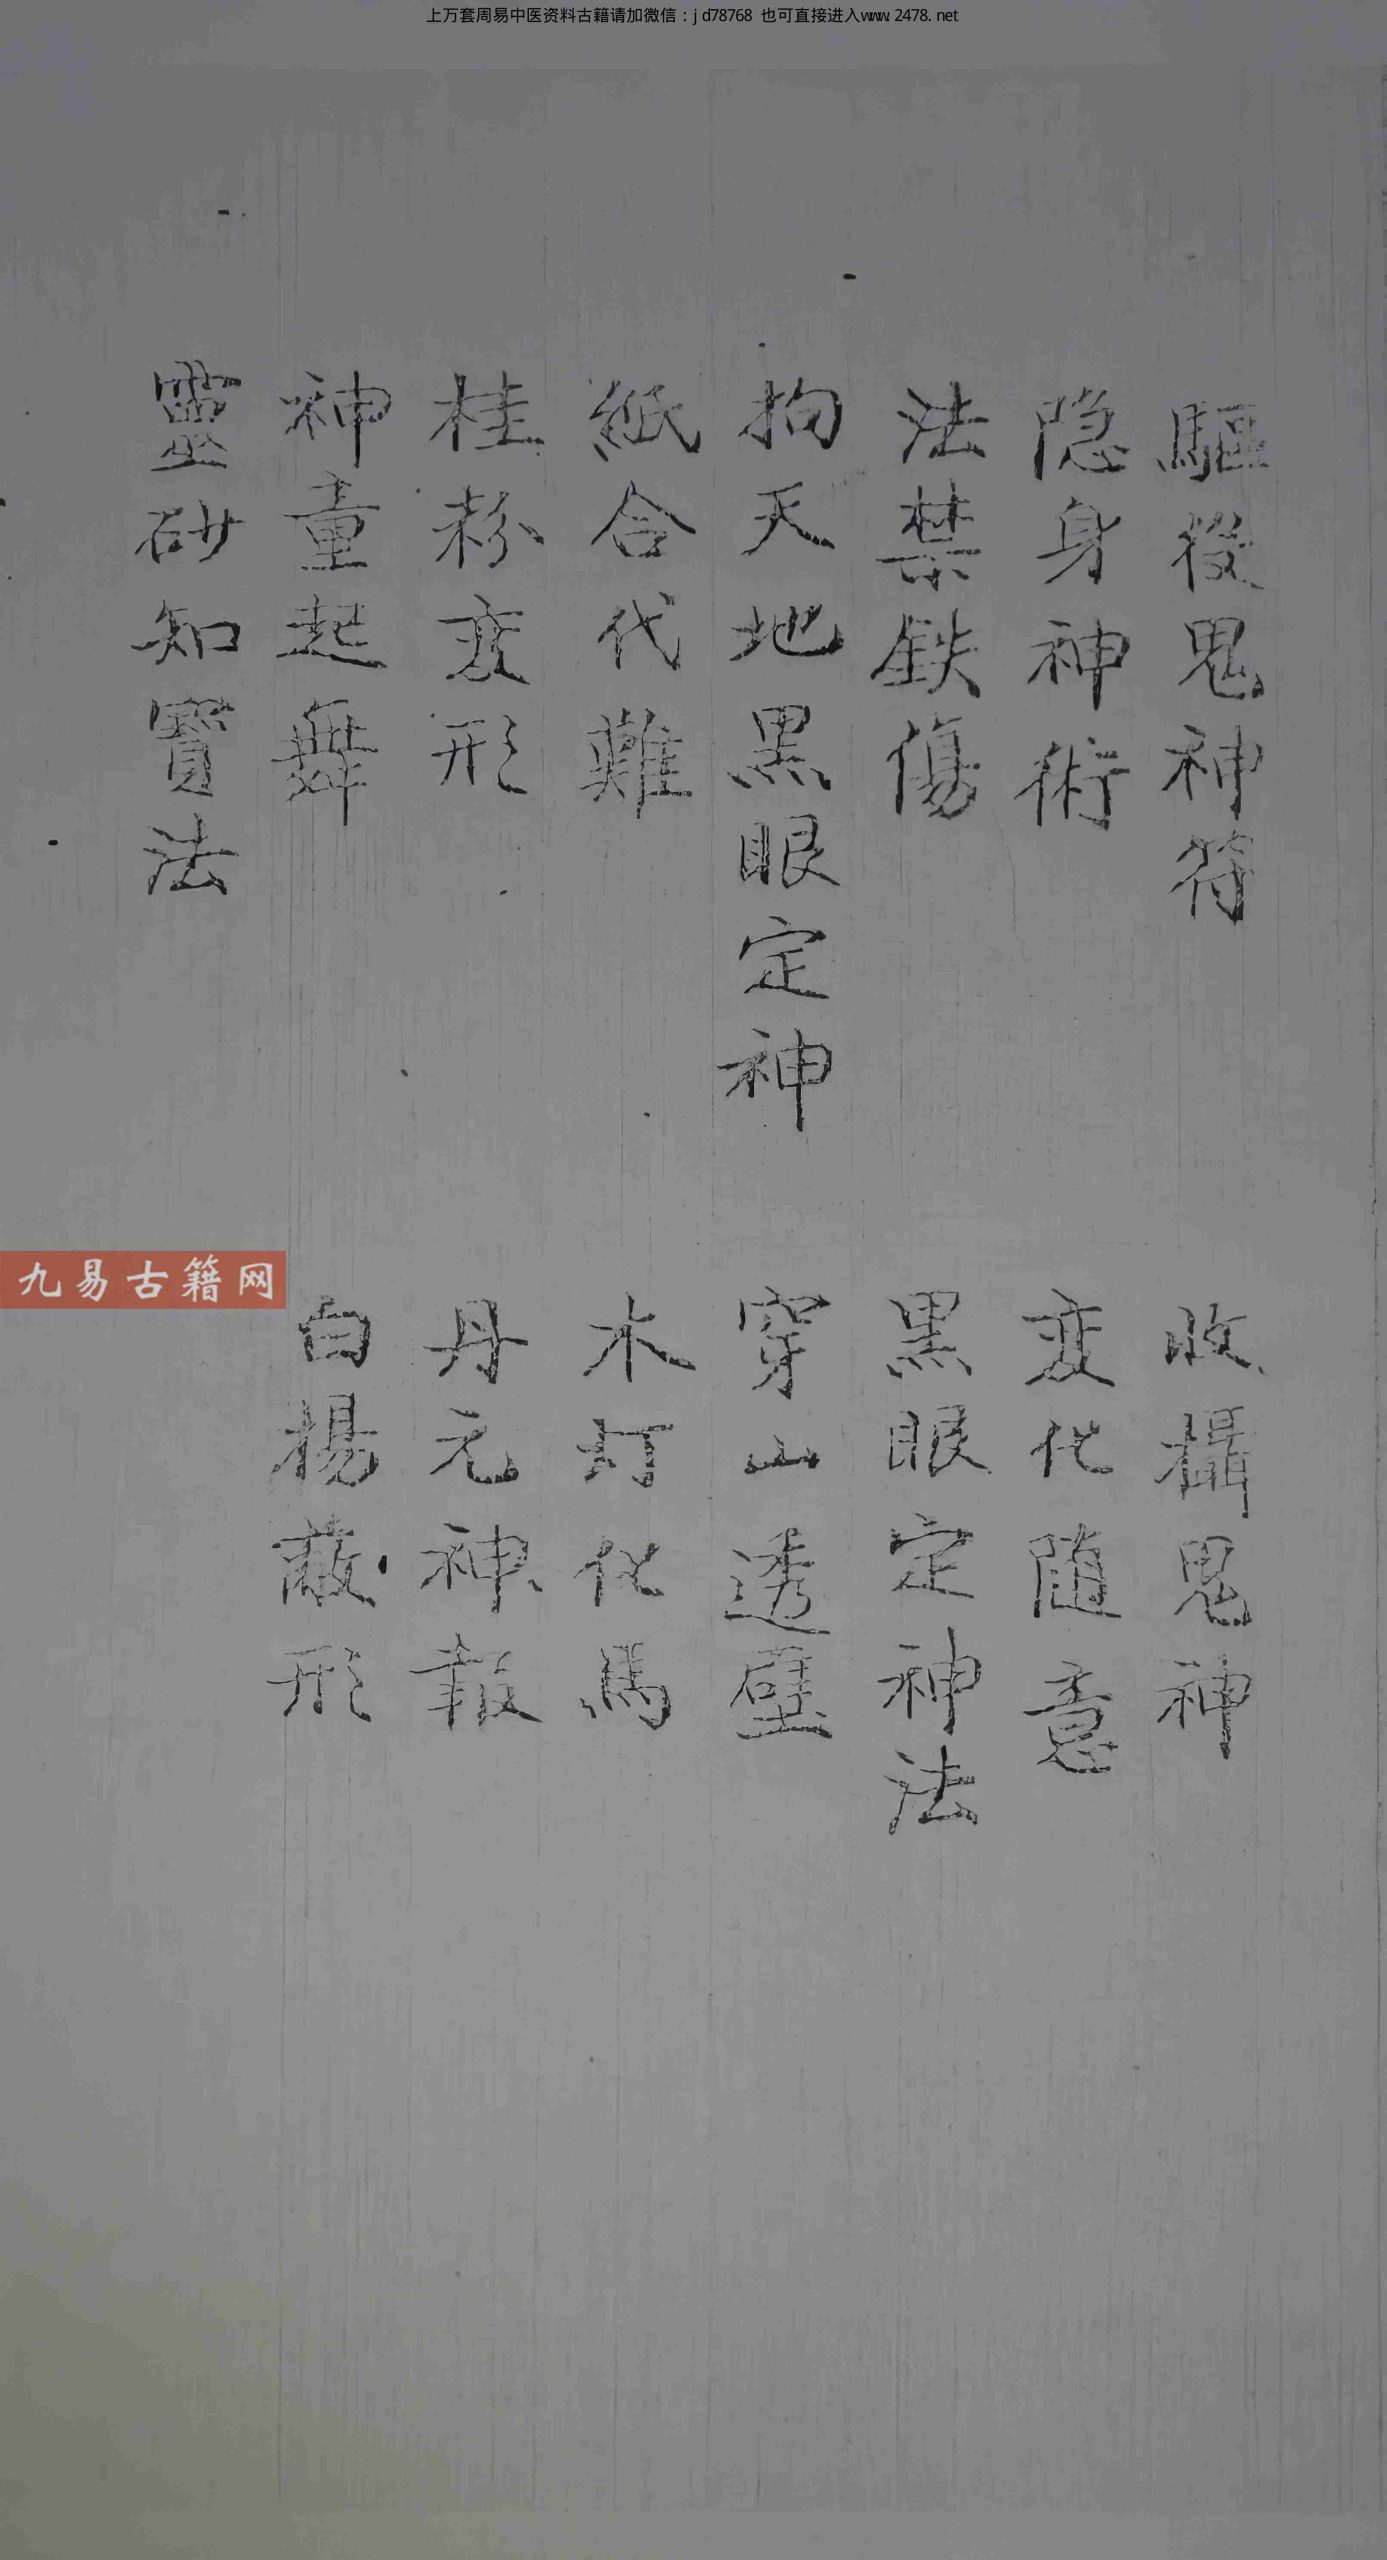 上万套周易中医资料古籍请加微信：jd78768 也可直接进入www.2478.net
驅役鬼神符
收攝鬼神
隐身神術
变化隨意
法禁鉄傷
黑眼定神法
拘天地黑眼定神
穿山透壁
紙合代難
木灯化馬
桂粉变形
丹元神報
神童起舞
白楊蔽形
靈砂知寶法
九易古籍网